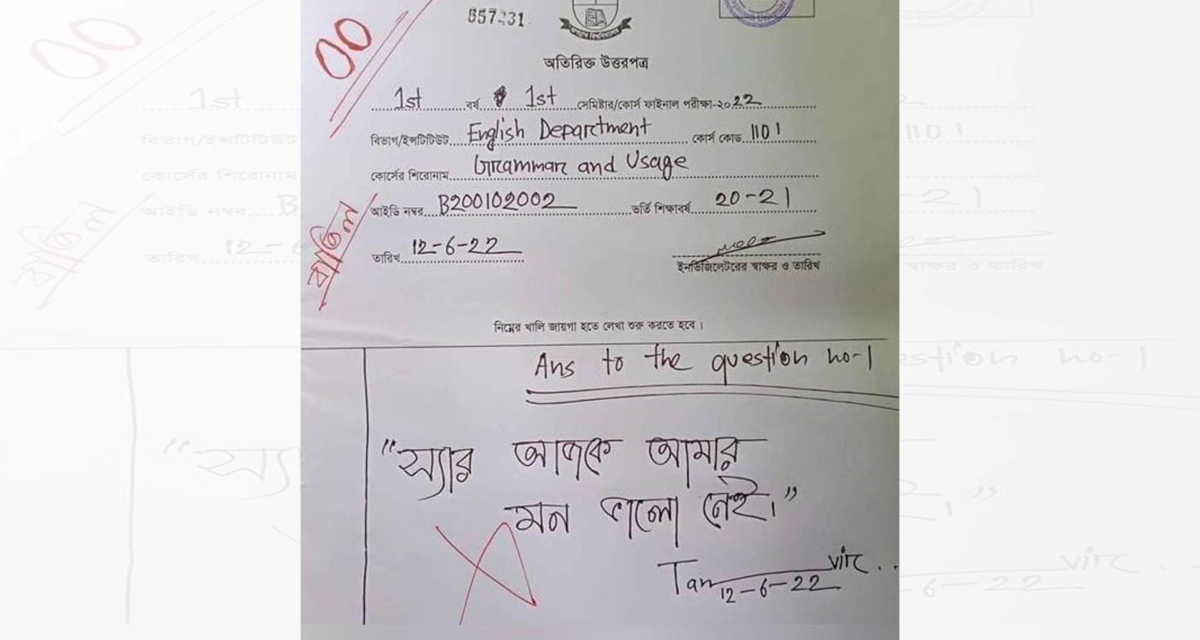 657231
00
অতিরিক্ত উত্তরপত্র
1st বর্ষ 1st সেমিষ্টার/কোর্স ফাইনাল পরীক্ষা-২০22
বিভাগ/ইন্সটিটিউট English Department কোর্স কোড 1101
কোর্সের শিরোনাম Grammar and Usage
আইডি নম্বর B200102002 ভর্তি শিক্ষাবর্ষ 20-21
বাতিল
তারিখ 12-6-22
ইনভিজিলেটরের স্বাক্ষর ও তারিখ
নিম্নের খালি জায়গা হতে লেখা শুরু করতে হবে।
Ans to the question no-1
"স্যার আজকে আমার
মন ভালো নেই।"
Tan vir
12-6-22